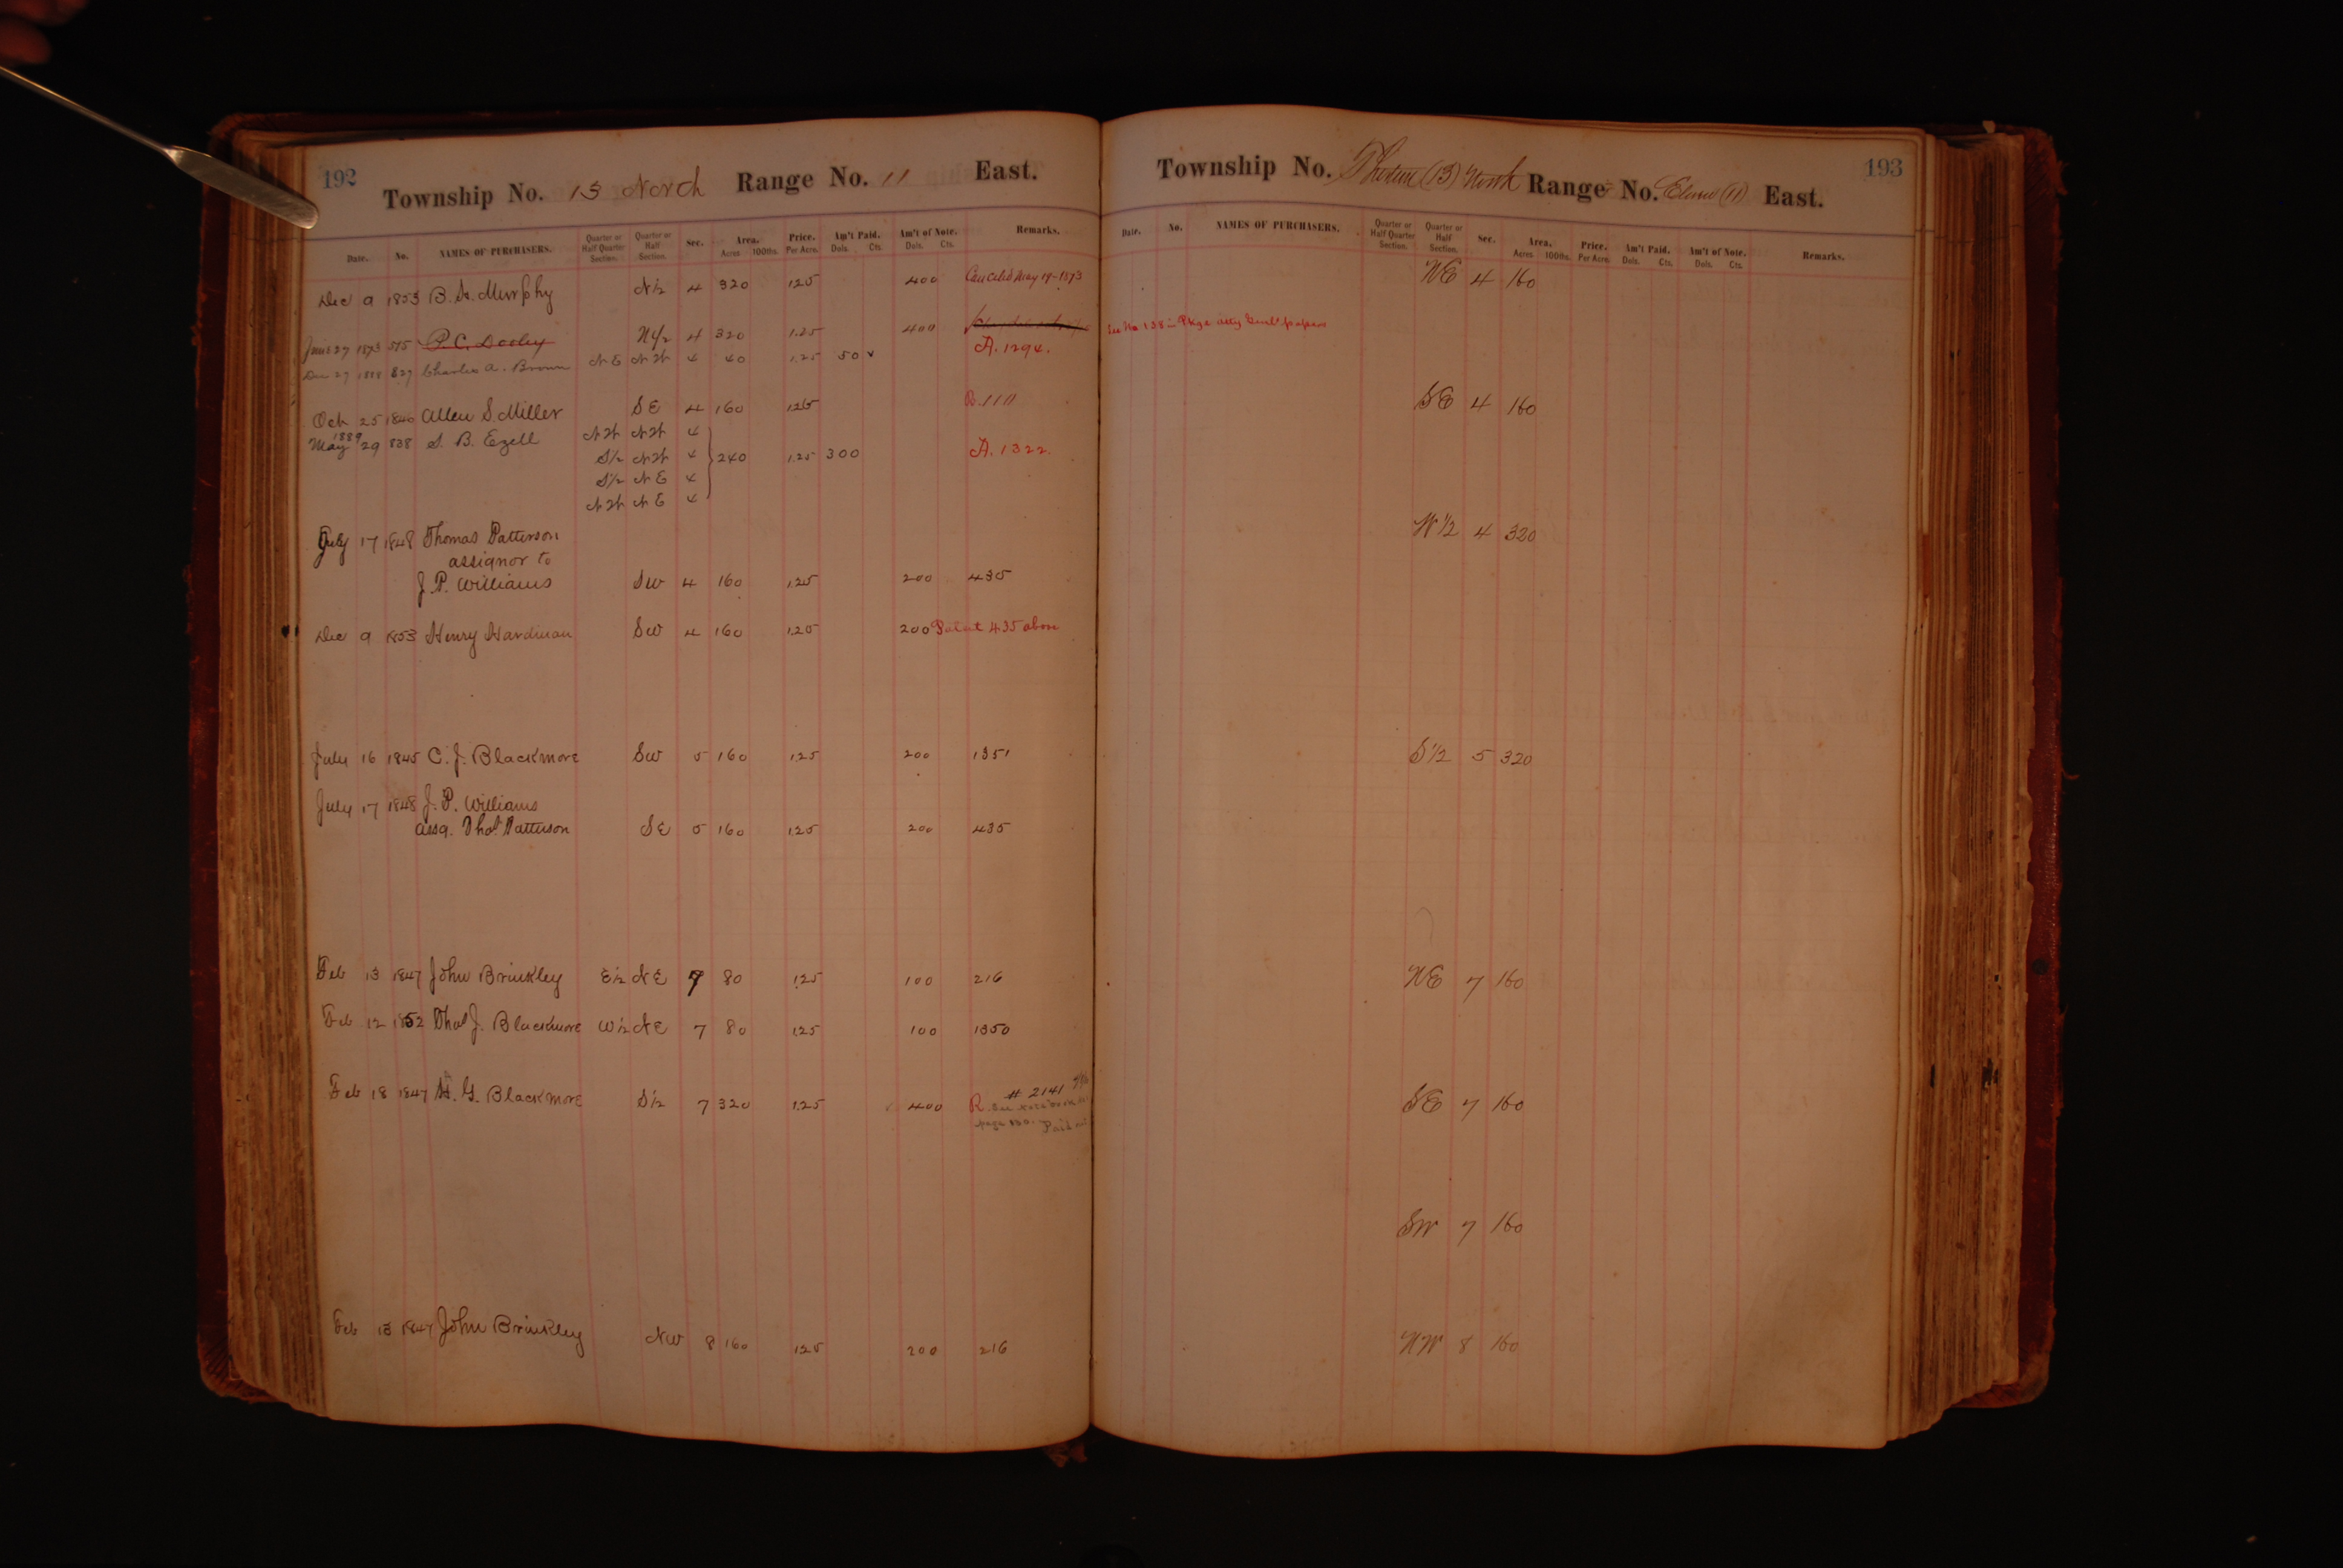 192
Township No. 13 North Range No. 11 East.
Date. No. NAMES OF PURCHASERS. Quarter or Half Quarter Section. Quarter or Half Section. Sec. Area. Acres 100ths. Price. Per Acre. Am't Paid. Dols. Cts. Am't of Note. Dols. Cts. Remarks.
Dec 9 1853 B. Murphy N½ 4 320 1.25 400 Cancelled May 19-1873
June 27 1873 575 P. C. Dooley N½ 4 320 1.25 400
Dec 27 1888 827 Charles A. Brown NE NW 4 40 1.25 50 A. 1294.
Oct 25 1840 Allen S. Miller SE 4 160 1.25 B. 1111
May 29 1889 838 S. B. Ezell NW NW 4
S½ NW 4 240 1.25 300 A. 1322.
S½ NE 4
NW NE 4
July 17 1848 Thomas Patterson
assignor to
J. P. Williams SW 4 160 1.25 200 435
Dec 9 1853 Henry Hardman SW 4 160 1.25 200 Patent 435 above
July 16 1845 C. J. Blackmore SW 5 160 1.25 200 1351
July 17 1848 J. P. Williams
assg. Thos. Patterson SE 5 160 1.25 200 435
Feb 13 1847 John Brinkley E½ NE 7 80 1.25 100 216
Feb 12 1852 Thos J. Blackmore W½ NE 7 80 1.25 100 1350
Feb 18 1847 H. G. Blackmore S½ 7 320 1.25 400 R # 2141
See note book
page Paid
Feb 13 1847 John Brinkley NW 8 160 1.25 200 216
193
Township No. Thirteen (13) North Range No. Eleven (11) East.
Date. No. NAMES OF PURCHASERS. Quarter or Half Quarter Section. Quarter or Half Section. Sec. Area. Acres 100ths. Price. Per Acre. Am't Paid. Dols. Cts. Am't of Note. Dols. Cts. Remarks.
NE 4 160
See No 138 in Pkge Atty Genl papers
SE 4 160
W ½ 4 320
S ½ 5 320
NE 7 160
SE 7 160
SW 7 160
NW 8 160